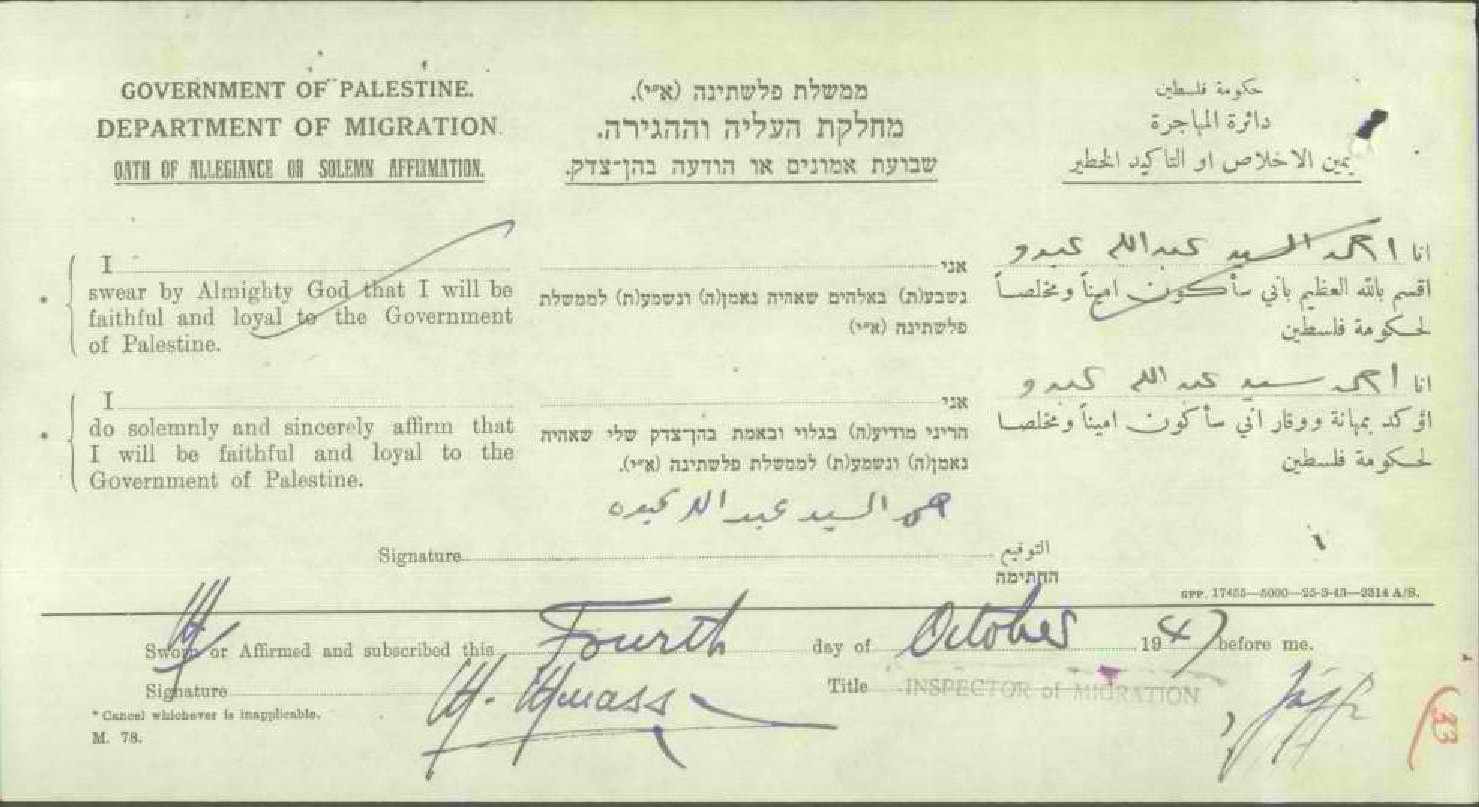 GOVERNMENT OF PALESTINE.
DEPARTMENT OF MIGRATION.
OATH OF ALLEGIANCE OR SOLEMN AFFIRMATION.
ממשלת פלשתינה (א״י).
מחלקת העליה וההגירה.
שבועת אמונים או הודעה בהן־צדק.
حكومة فلسطين
دائرة المهاجرة
يمين الاخلاص او التاكيد الخطير
* I
swear by Almighty God that I will be
faithful and loyal to the Government
of Palestine.
אני
נשבע(ת) באלהים שאהיה נאמן(ה) ונשמע(ת) לממשלת
פלשתינה (א״י)
انا احمد السيد عبدالله عبدو
اقسم بالله العظيم باني سأكون اميناً ومخلصاً
لحكومة فلسطين
* I
do solemnly and sincerely affirm that
I will be faithful and loyal to the
Government of Palestine.
אני
הריני מודיע(ה) בגלוי ובאמת בהן־צדק שלי שאהיה
נאמן(ה) ונשמע(ת) לממשלת פלשתינה (א״י).
انا احمد سيد عبد الله عبدو
اؤكد بمهانة ووقار اني سأكون اميناً ومخلصا
لحكومة فلسطين
السيد عبد الله
Signature التوقيع
החתימה
GPP. 17455—5000—25-3-43—2314 A/S.
Sworn or Affirmed and subscribed this Fourth day of October 1947 before me.
Signature Title INSPECTOR of MIGRATION
* Cancel whichever is inapplicable.
M. 78.
33